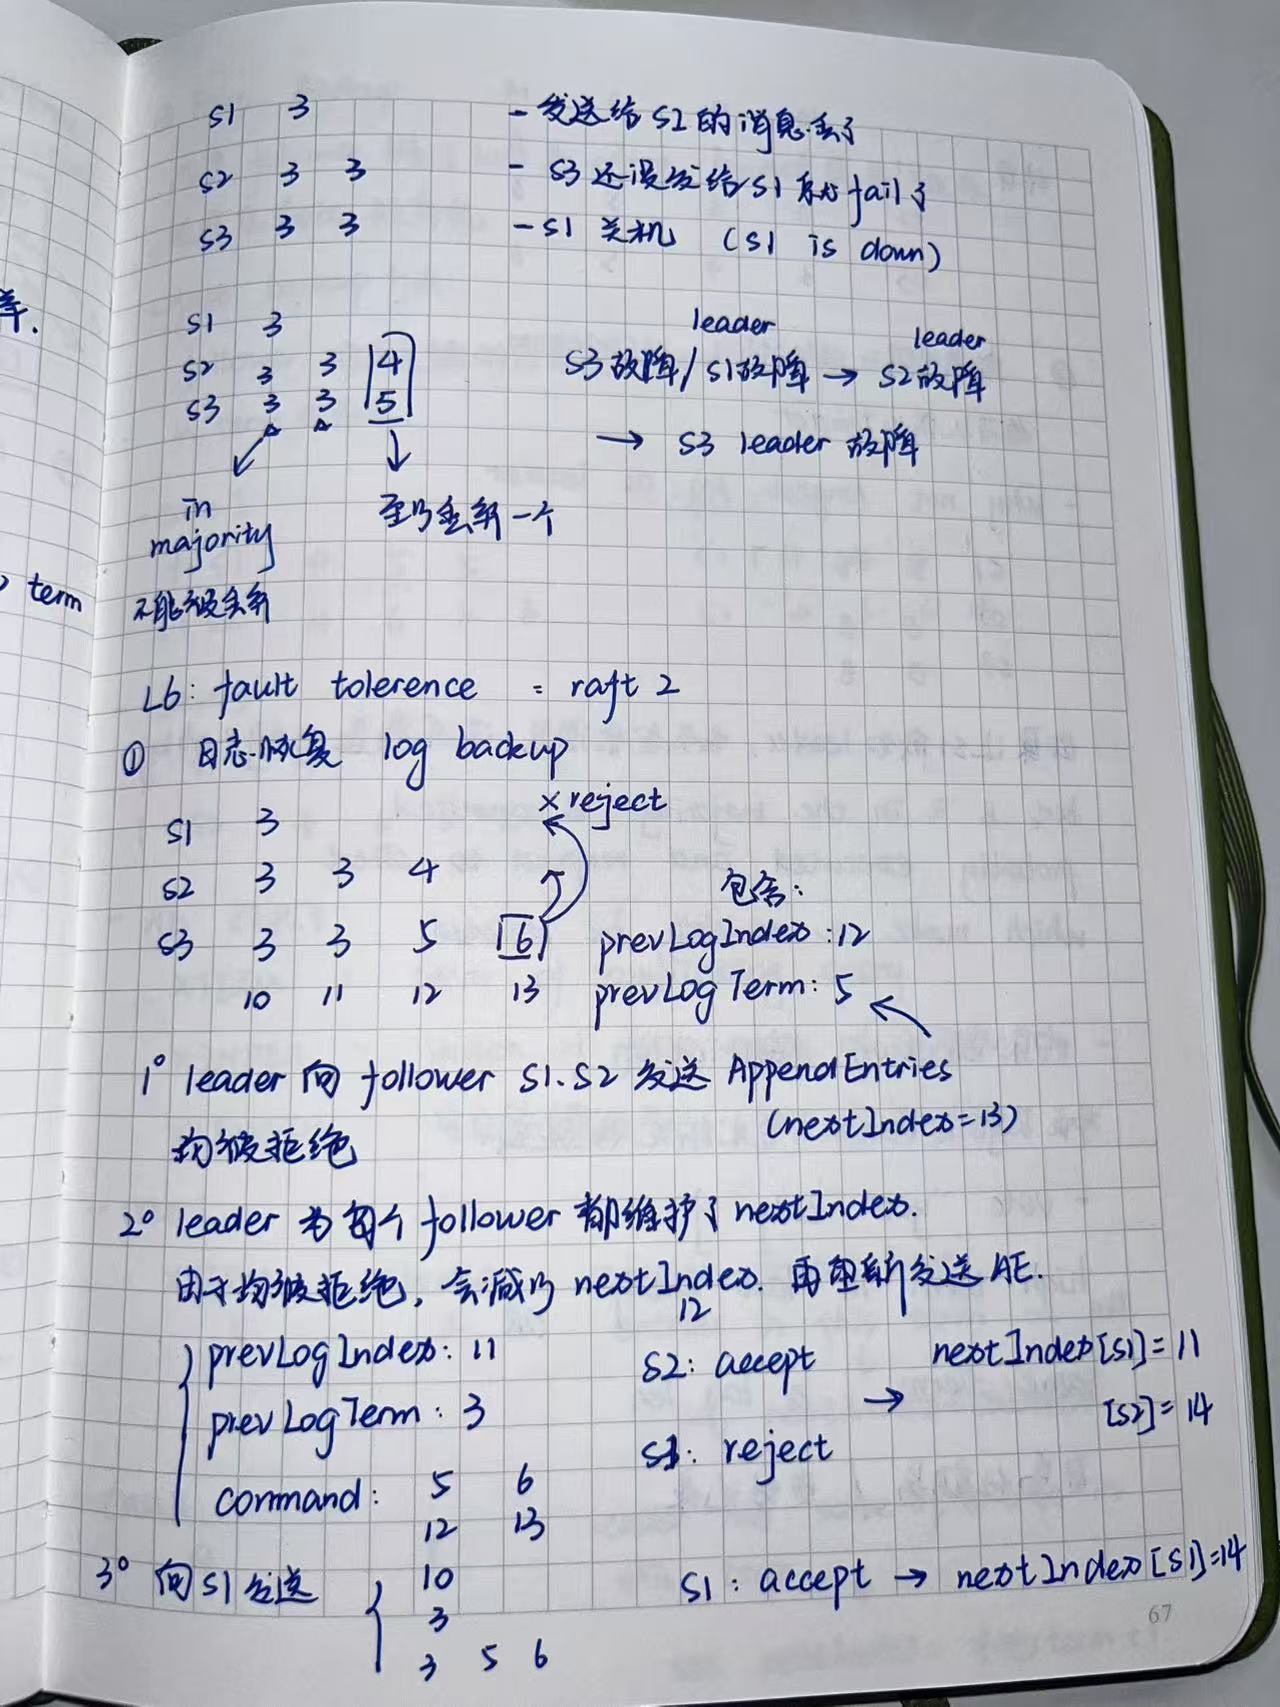 S1 3 - 发送给S2的消息丢了
S2 3 3 - S3还没发给S1就fail了
S3 3 3 - S1关机 (S1 is down)
S1 3
S2 3 3 4
S3 3 3 5
leader leader
S3故障/S1故障 → S2故障
→ S3 leader 故障
in
majority
不能被丢弃
至少丢弃一个
率.
term
L6: fault tolerence = raft 2
① 日志恢复 log backup
× reject
S1 3
S2 3 3 4
S3 3 3 5 6
10 11 12 13
包含:
prevLogIndex: 12
prevLogTerm: 5
1° leader 向 follower S1. S2 发送 AppendEntries
(nextIndex=13)
均被拒绝
2° leader 为每个 follower 都维护了 nextIndex.
由于均被拒绝, 会减少 nextIndex. 再重新发送 AE.
12
prevLogIndex: 11
prevLogTerm: 3
command: 5 6
12 13
S2: accept
S1: reject
→ nextIndex[S1]=11
[S2]=14
3° 向S1发送
10
3
3 5 6
S1: accept → nextIndex[S1]=14
67